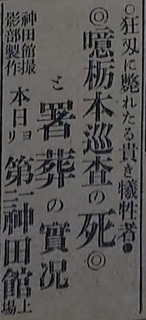 ○狂刄に斃れたる貴き犠牲者●
◎噫栃木巡査の死◎
と署葬の實况
神田館撮影部製作
本日ヨリ
第三神田館上場